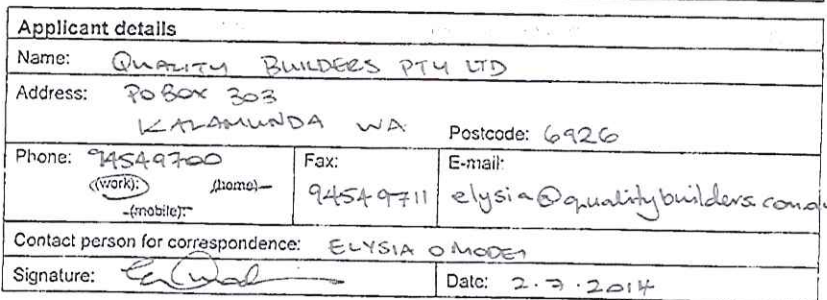 Applicant details
Name: QUALITY BUILDERS PTY LTD
Address: PO BOX 303
KALAMUNDA WA Postcode: 6926
Phone: 94549700 Fax: E-mail:
(work): (home) 94549711 elysia@qualitybuilders.com.au
(mobile):
Contact person for correspondence: ELYSIA OMODEI
Signature: Date: 2.7.2014